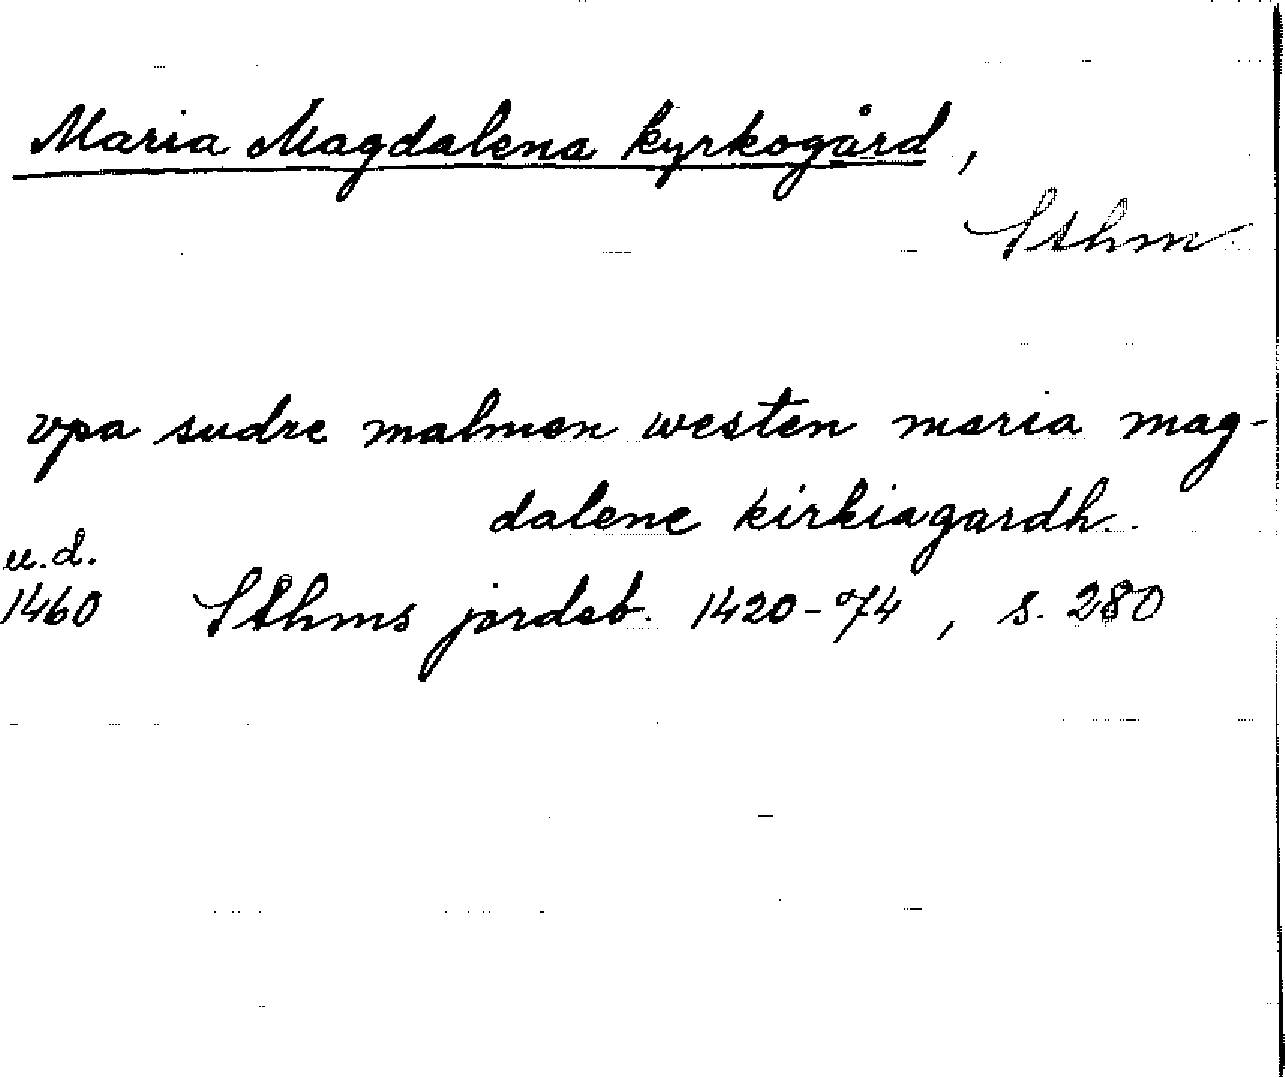 Maria Magdalena kyrkogård,
Sthm.
vpa sudre malmen westen maria mag-
dalene kirkiagardh.
u.d.
1460 Sthms jordeb. 1420-74, s. 280